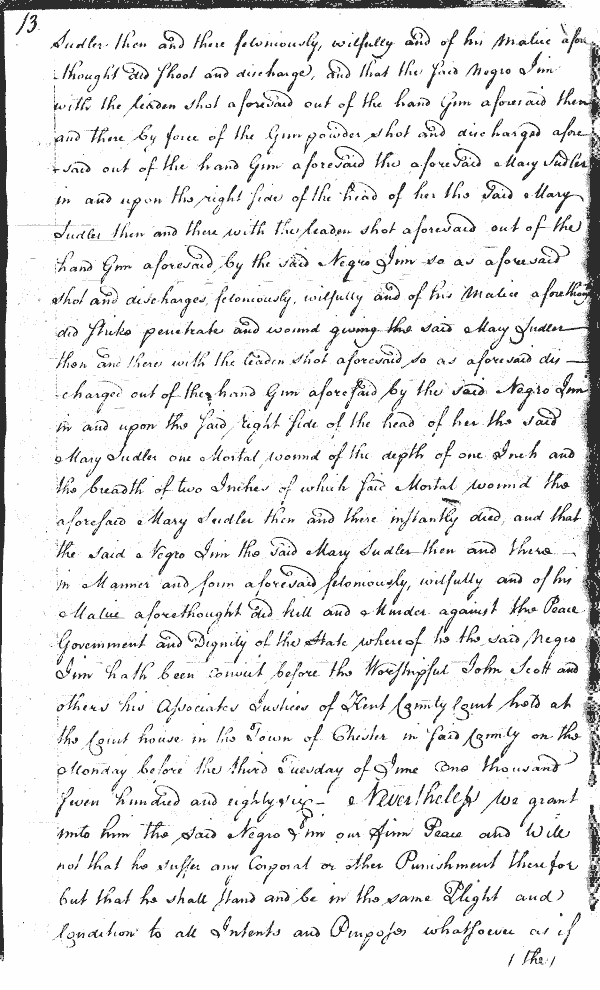 13
Sudler then and there feloniously, wilfully and of his Malice afore
thought did shoot and discharge, and that the said Negro Jim
with the leaden shot aforesaid out of the hand Gun aforesaid then
and there by force of the Gun powder shot and discharged afore
-said out of the hand Gun aforesaid the aforesaid Mary Sudler
in and upon the right side of the head of her the said Mary
Sudler then and there with the leaden shot aforesaid out of the
hand Gun aforesaid by the said Negro Jim so as aforesaid
shot and discharges, feloniously, wilfully and of his Malice aforethought
did strike penetrate and wound giving the said Mary Sudler
then and there with the leaden shot aforesaid so as aforesaid dis
charged out of the hand Gun aforesaid by the said Negro Jim
in and upon the said right side of the head of her the said
Mary Sudler one Mortal wound of the depth of one Inch and
the breadth of two Inches of which said Mortal wound the
aforesaid Mary Sudler then and there instantly died, and that
the said Negro Jim the said Mary Sudler then and there
in Manner and form aforesaid feloniously, wilfully and of his
Malice aforethought did kill and Murder against the Peace
Government and Dignity of the State whereof he the said Negro
Jim hath been convict before the Worshipful John Scott and
others his Associates Justices of Kent County Court held at
the Court house in the Town of Chester in said County on the
Monday before the third Tuesday of June one thousand
seven hundred and eighty six - Nevertheless we grant
unto him the said Negro Jim our firm Peace and Will
not that he suffer any Corporal or other Punishment therefor
but that he shall stand and be in the same Plight and
Condition to all Intents and Purposes whatsoever as if
/ the /